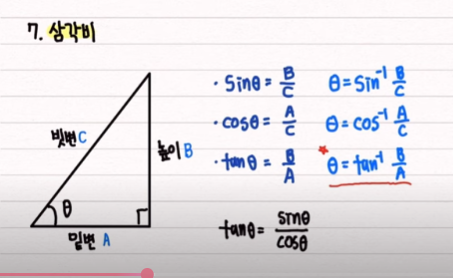 7. 삼각비
빗변 C
높이 B
θ
밑변 A
· sinθ = B/C θ = sin⁻¹ B/C
· cosθ = A/C θ = cos⁻¹ A/C
· tanθ = B/A * θ = tan⁻¹ B/A
tanθ = sinθ/cosθ